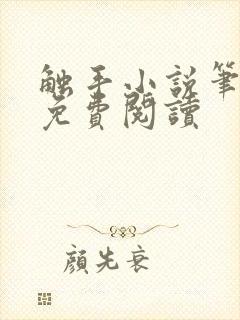 触手小説筆
免費閱讀
顔先衰